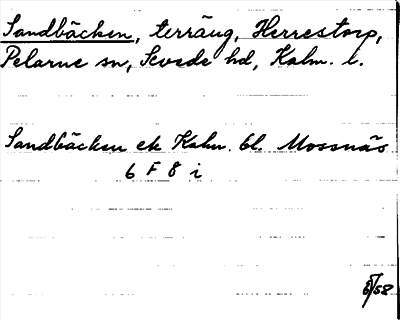 Sandbäcken, terräng, Herrestorp,
Pelarne sn, Sevede hd, Kalm. l.
Sandbäcken ek Kalm. bl. Mossnäs
6 F 8 i
/58